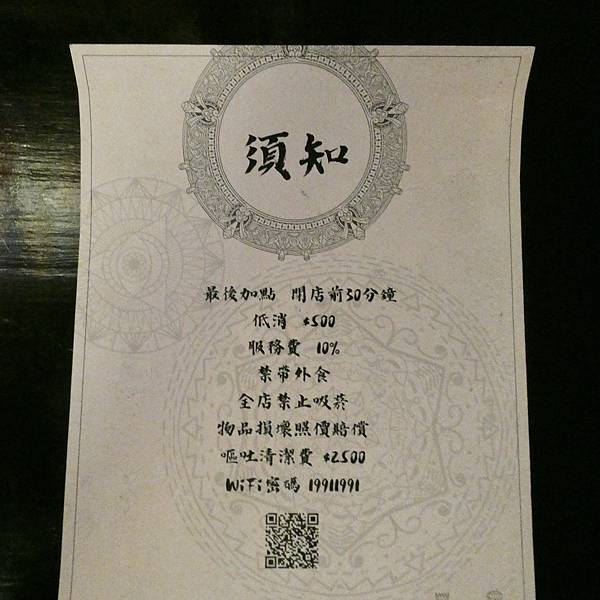 須知
最後加點 閉店前30分鐘
低消 $500
服務費 10%
禁帶外食
全店禁止吸菸
物品損壞照價賠償
嘔吐清潔費 $2500
WiFi密碼 19911991